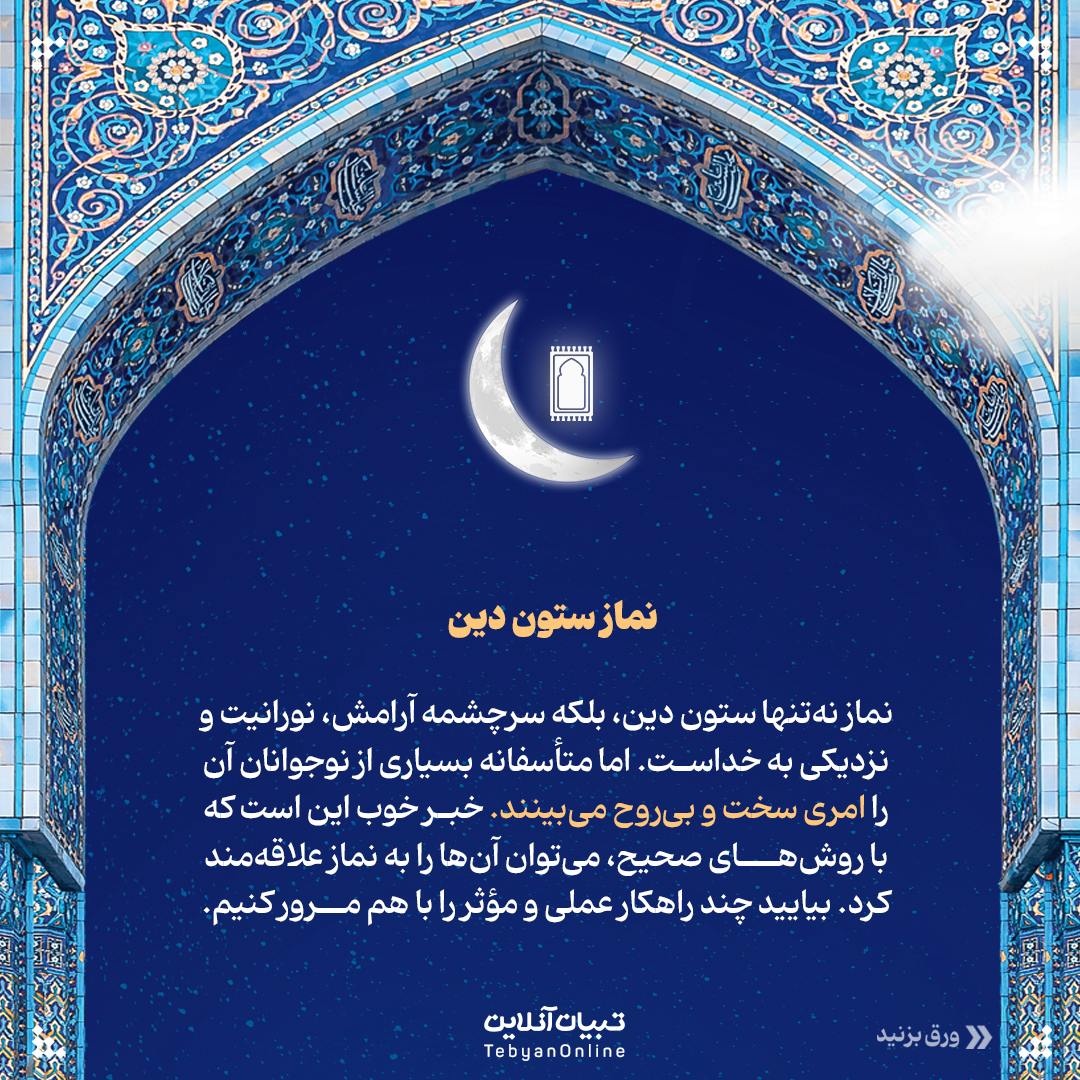 نماز ستون دین
نماز نه‌تنها ستون دین، بلکه سرچشمه آرامش، نورانیت و
نزدیکی به خداست. اما متأسفانه بسیاری از نوجوانان آن
را امری سخت و بی‌روح می‌بینند. خبر خوب این است که
با روش‌های صحیح، می‌توان آن‌ها را به نماز علاقه‌مند
کرد. بیایید چند راهکار عملی و مؤثر را با هم مرور کنیم.
تبیان‌آنلاین
TebyanOnline
ورق بزنید